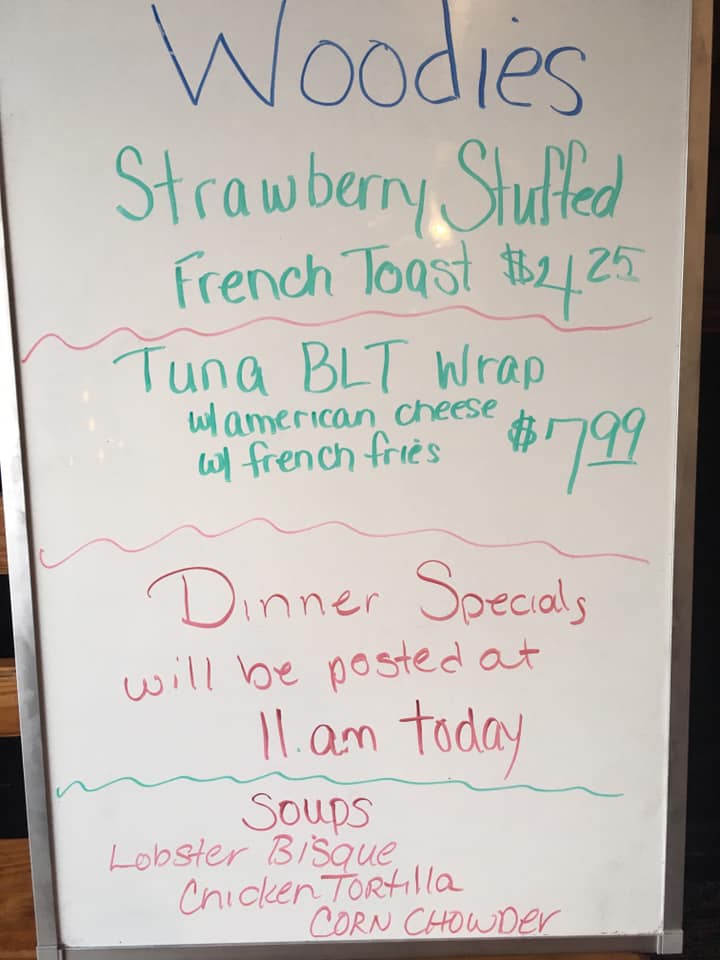 Woodies
Strawberry Stuffed
French Toast $4.25
Tuna BLT Wrap
w/ american cheese
w/ french fries $7.99
Dinner Specials
will be posted at
11.am today
Soups
Lobster Bisque
Chicken Tortilla
CORN CHOWDER